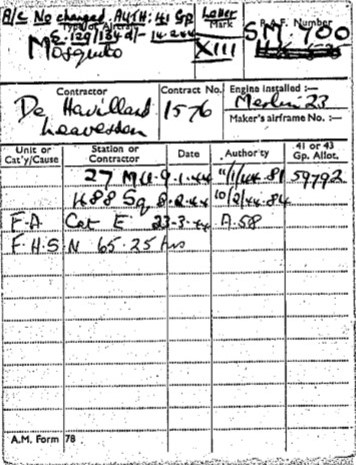 A/C No changed. AUTH: 41 Gp.
Type of Aircraft
Mosquito
Letter
Mark
XIII
R.A.F. Number
SM. 700
Contractor
De Havilland
Leavesden
Contract No.
1576
Engine installed :—
Merlin 23
Maker's airframe No. :—
Unit or Cat'y/Cause
Station or Contractor
Date
Authority
41 or 43 Gp. Allot.
27 M.U. 9.1.44 11/1/44.81 59792
488 Sq 8.2.44 10/2/44.84
F.A Cat E 23-3-44 A.58
F.H.S.N 65.25 hrs
A.M. Form 78